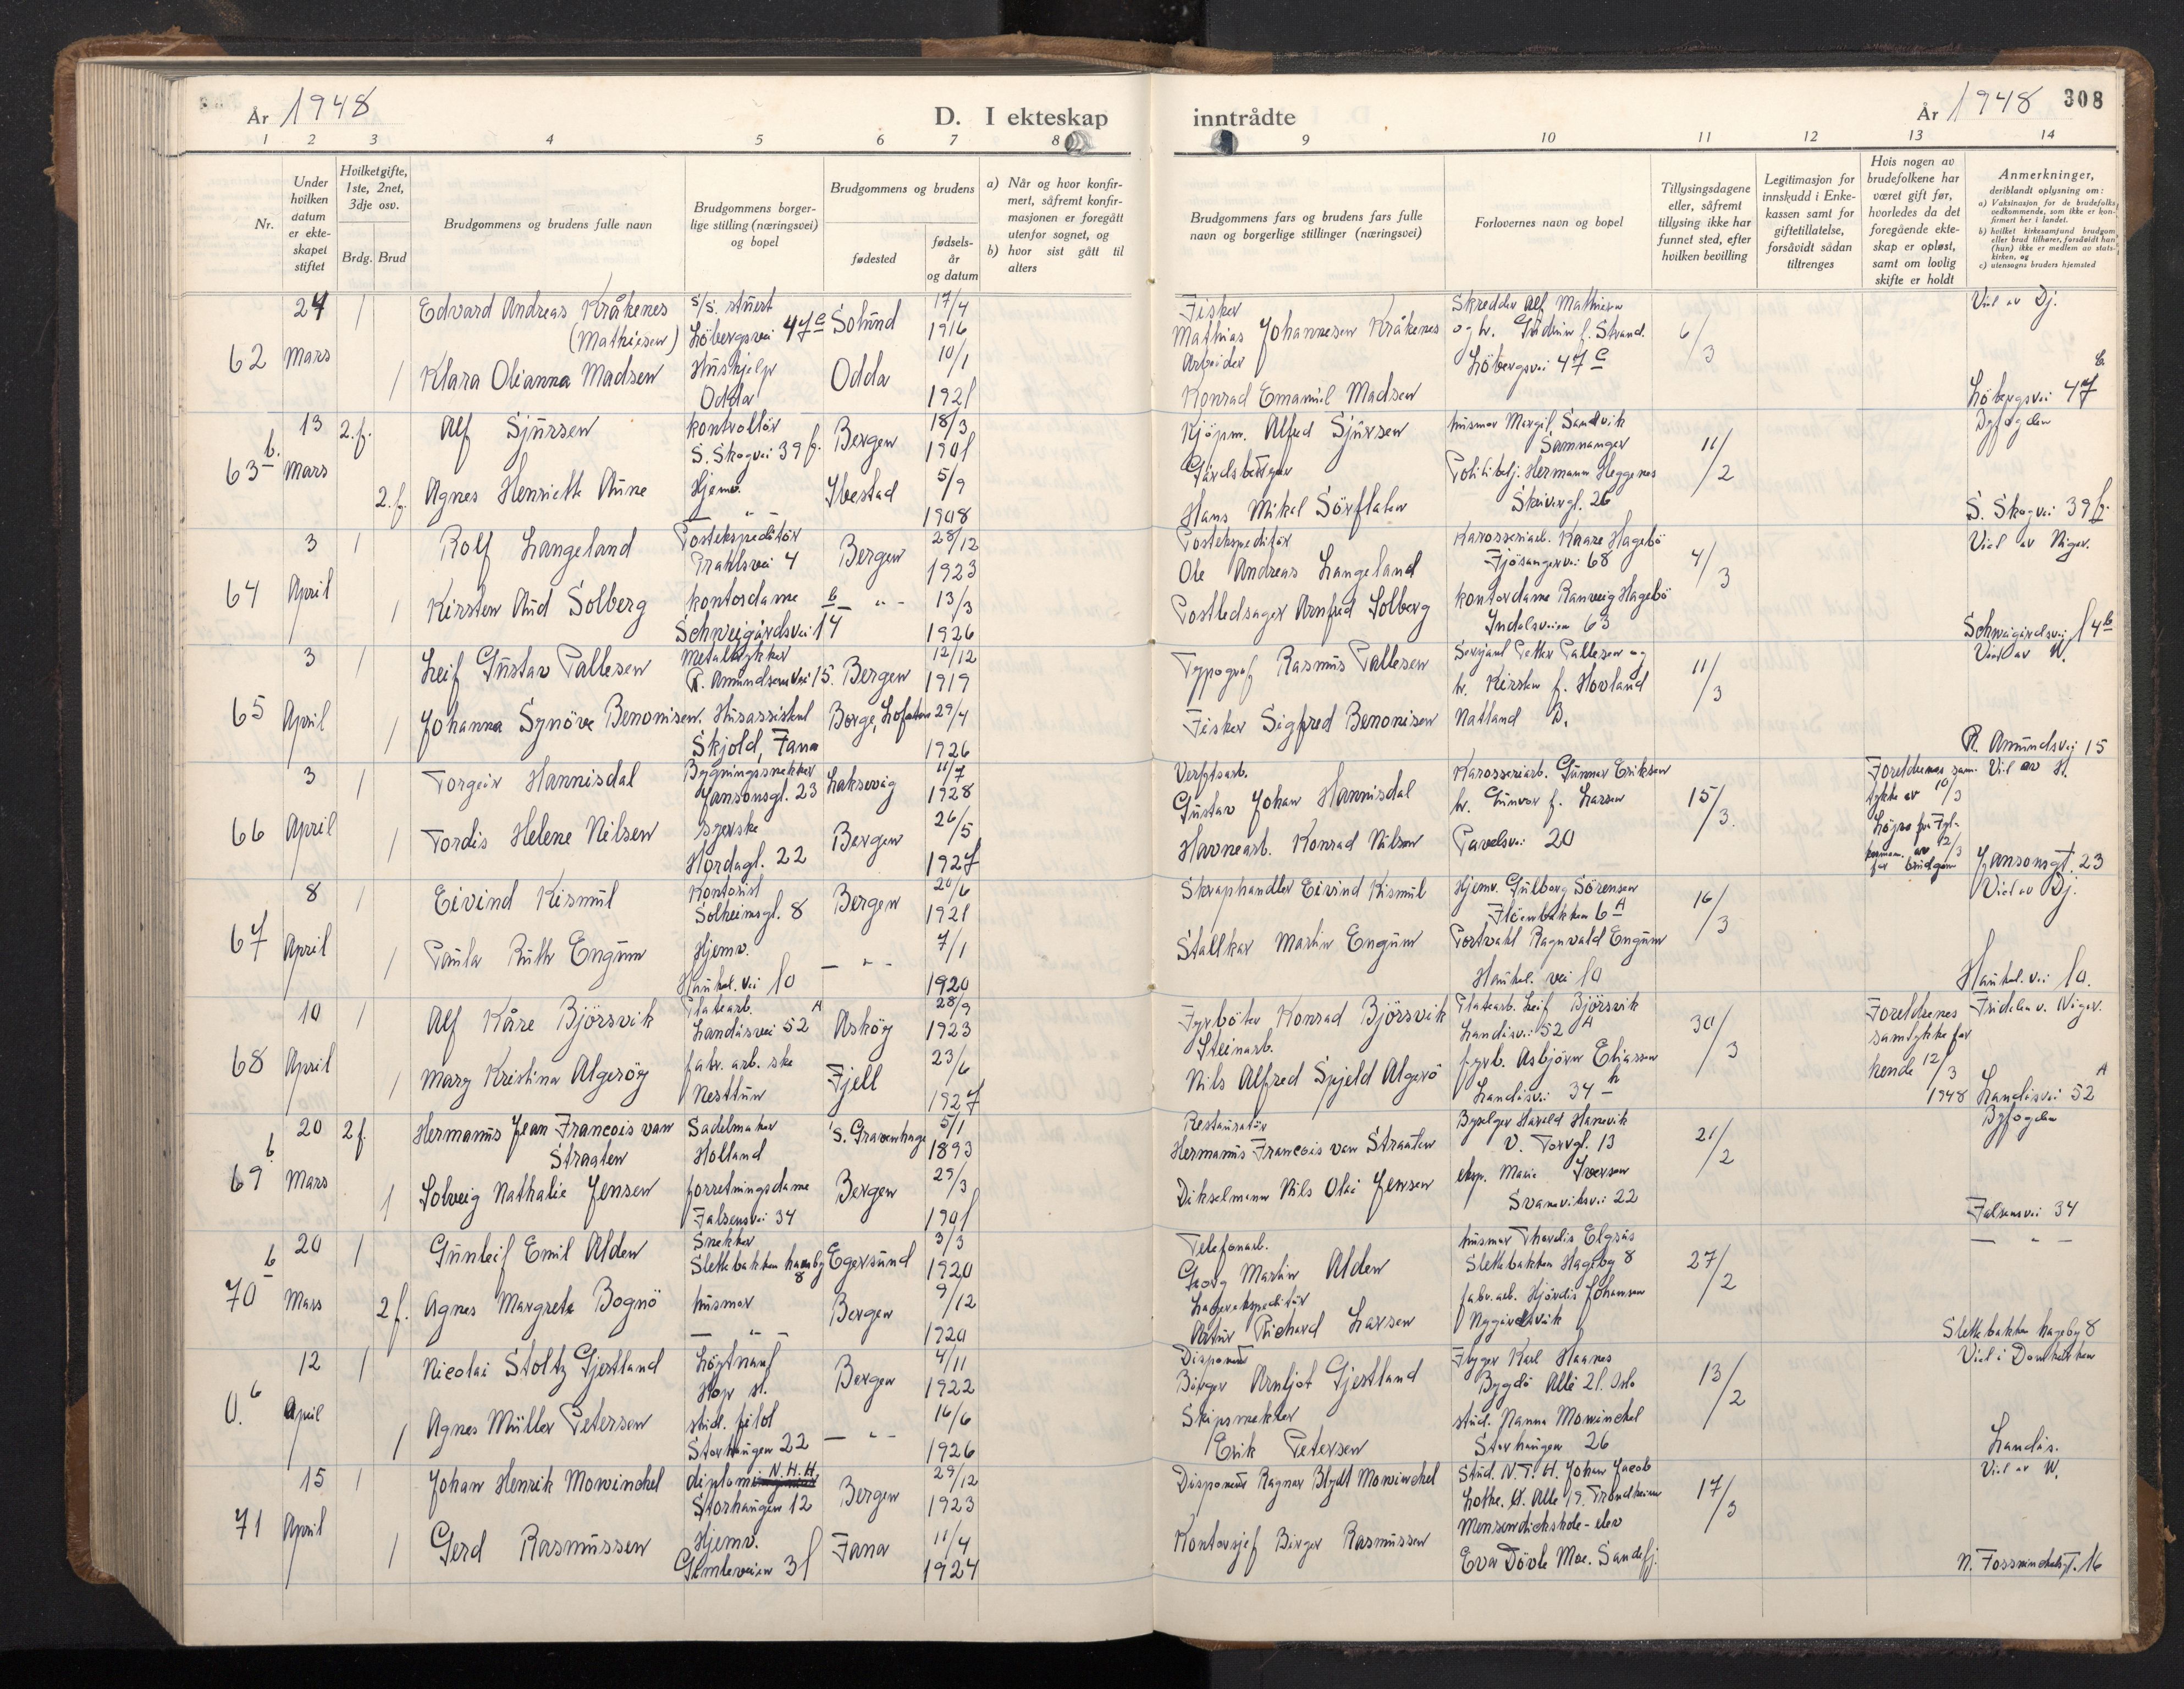 År 1948
D. I ekteskap
inntrådte
År 1948 308
1 2 3 4 5 6 7 8 9 10 11 12 13 14
Nr.
Under hvilken datum er ekteskapet stiftet
Hvilketgifte, 1ste, 2net, 3dje osv.
Brdg. Brud
Brudgommens og brudens fulle navn
Brudgommens borgerlige stilling (næringsvei) og bopel
Brudgommens og brudens
fødested
fødselsår og datum
a) Når og hvor konfirmert, såfremt konfirmasjonen er foregått utenfor sognet, og
b) hvor sist gått til alters
Brudgommens fars og brudens fars fulle navn og borgerlige stillinger (næringsvei)
Forlovernes navn og bopel
Tillysingsdagene eller, såfremt tillysing ikke har funnet sted, efter hvilken bevilling
Legitimasjon for innskudd i Enkekassen samt for giftetillatelse, forsåvidt sådan tiltrenges
Hvis nogen av brudefolkene har været gift før, hvorledes da det foregående ekteskap er opløst, samt om lovlig skifte er holdt
Anmerkninger, deriblandt oplysning om:
a) Vaksinasjon for de brudefolks vedkommende, som ikke er konfirmert her i landet.
b) hvilket kirkesamfund brudgom eller brud tilhører, forsåvidt han (hun) ikke er medlem av statskirken, og
c) utensogns bruders hjemsted
62 24 Mars 1 Edvard Andreas Kråkenes (Mathiesen) S/S. stuert Löbergsvei 47 C Solund 17/4 1916
Fisker Mathias Johannesen Kråkenes
Skredder Alf Mathiesen og h. Gudrun f. Strand. Löbergsvei 47 C
6/3
Viel av Dj.
1 Klara Olianna Madsen Hushjelp Odda Odda 10/1 1921
Arbeider Konrad Emanuel Madsen
Löbergsvei 47
63 b. 13 Mars 2. f. Alf Sjursen kontrollör S. Skogvei 39 f. Bergen 18/3 1901
Kjöpm. Alfred Sjursen
husmor Margit Sandvik Samnanger
11/2
Byfogden
2. f. Agnes Henriette Aune Hjemv. Ibestad 5/9 1908
Gårdsbruger Hans Mikal Sörflaten
Politibetj. Hermann Heggenes Skivergt. 26
S. Skogvei 39 f.
64 3 April 1 Rolf Langeland Postekspeditör Prahlsvei 4 Bergen 28/12 1923
Postekspeditör Ole Andreas Langeland
Karosseriarb. Kaare Hagebö Fjösangervei 68
4/3
Viel av Niger.
1 Kirsten Aud Solberg kontordame Schweigårdsvei 14 b - " - 13/3 1926
Postledsager Arnfred Solberg
Kontordame Ranveig Hagebö Indalsveien 63
Schweigårdsvei 14 b
65 3 April 1 Leif Gustav Pallesen Metaltrykker R. Amundsens Vei 15. Bergen 12/12 1919
Typograf Rasmus Pallesen
Serjant Petter Pallesen og h. Kirsten f. Hovland Natland B.
11/3
Viel av W.
1 Johanna Synöve Benonisen. Husassistent Skjold, Fana Borge, Lofoten 29/4 1926
Fisker Sigfred Benonisen
R. Amundsvei 15
66 3 April 1 Torgeir Hannisdal Bygningssnekker Jansonsgt. 23 Laksevåg 11/7 1928
Verftsarb. Gustav Johan Hannisdal
Karosseriarb. Gunnar Eriksen h. Gunvor f. Larsen Pavelsvei 20
15/3.
Foreldrenes samtykke av 10/3
Viel av H.
1 Tordis Helene Nilsen syerske Hordagt. 22 Bergen 26/5 1927
Havnearb. Konrad Nilsen
Jansonsgt. 23
67 8 April 1 Eivind Kismul Kontorist Solheimsgt. 8 Bergen 20/6 1921
Skraphandler Eivind Kismul
Hjemv. Gulborg Sörensen Flöenbakken 6 A
16/3
Viel av Dj.
1 Paula Ruth Engum Hjemv. Haukel. vei 10 - " - 7/1 1920
Stallkar Martin Engum
Portvakt Ragnvald Engum Haukel. vei 10
Haukel. vei 10.
68 10 April 1 Alf Kåre Björsvik Platearb. Landåsvei 52 A Asköy 28/9 1923
Fyrböter Konrad Björsvik
Platearb. Leif Björsvik Landåsvei 52 A
30/3
Foreldrenes samtykke forkende 12/3 1948
1 Mary Kristina Algeröy fabr. arb. ske Nesttun Fjell 23/6 1927
Steinarb. Nils Alfred Spjeld Algerö
fyrb. Asbjörn Eliassen Landåsvei 34 h
Landåsvei 52 A
69 b 20 Mars 2 f. Hermanus Jean Francois van Straaten Sadelmaker Holland 's. Gravenhage 5/1 1893
Restauratör Hermanus Francois van Straaten
Byselger Harald Hanevik V. Torvgt. 13
21/2
Byfogden
1 Solveig Nathalie Jensen forretningsdame Falsensvei 34 Bergen 29/3 1901
Dikselmann Nils Olai Jensen
eksp. Marie Iversen Svaneviksvei 22
Falsensvei 34
70 b 20 Mars 1 Gunleif Emil Alden Snekker Slettebakken haveby 8 Egersund 3/3 1920
Telefonarb. Georg Martin Alden
husmor Thordis Elgsås Slettebakken Hageby 8
27/2
- " -
2 f. Agnes Margrete Bognö husmor - " - Bergen 9/12 1920
Lagerekspeditör Artur Richard Larsen
fabr. arb. Hjördis Johansen Nygårdsvik
Slettebakken hageby 8
0. b 12 April 1 Nicolai Stoltz Gjestland Löytnant Hop st. Bergen 4/11 1922
Disponent Birger Arnljot Gjestland
Flyger Karl Haanes Bygdö Alle 21. Oslo
13/2
Viel i Domkirken
1 Agnes Müller Petersen stud. filol Storhaugen 22 - " - 16/6 1926
Skipsmekler Erik Petersen
stud. Nanna Mowinckel Storhaugen 26
Landås.
71 15 April 1 Johan Henrik Mowinckel diplom N.H.H Storhaugen 12 Bergen 29/12 1923
Disponent Ragnar Blydt Mowinckel
Stud. N.T.H. Johan Jacob Lothe. E. Alle 19. Trondheim
17/3
Viel av W.
1 Gerd Rasmussen Hjemv. Gimleveien 31 Fana 11/4 1924
Kontorsjef Birger Rasmussen
Mensendickskole-elev Eva Dövle Moe. Sandefj.
N. Fosswinckelsgt. 16